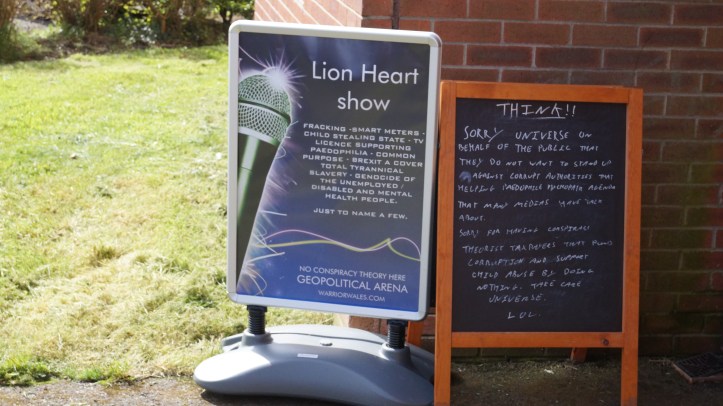 Lion Heart
show
FRACKING - SMART METERS -
CHILD STEALING STATE - TV
LICENCE SUPPORTING
PAEDOPHILIA - COMMON
PURPOSE - BREXIT A COVER
TOTAL TYRANNICAL
SLAVERY - GENOCIDE OF
THE UNEMPLOYED /
DISABLED AND MENTAL
HEALTH PEOPLE.
JUST TO NAME A FEW.
NO CONSPIRACY THEORY HERE
GEOPOLITICAL ARENA
WARRIORWALES.COM
THINK!!
SORRY UNIVERSE ON
BEHALF OF THE PUBLIC THAT
THEY DO NOT WANT TO STAND UP
AGAINST CORRUPT AUTHORITIES THAT
HELPING AGENDA
THAT MANY MEDIAS HAVE
ABOUT.
SORRY FOR HAVING CONSPIRACY
THEORIST TAXPAYERS THAT FUND
CORRUPTION AND SUPPORT
CHILD ABUSE BY DOING
NOTHING. TAKE CARE
UNIVERSE.
LOL.